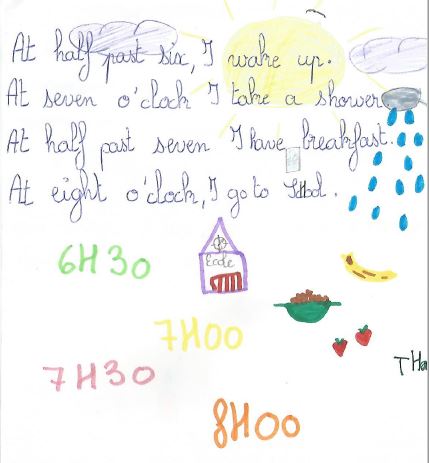 At half past six, I wake up.
At seven o'clock I take a shower.
At half past seven I have breakfast.
At eight o'clock, I go to School.
Ecole
6H30
7H00
7H30
8H00